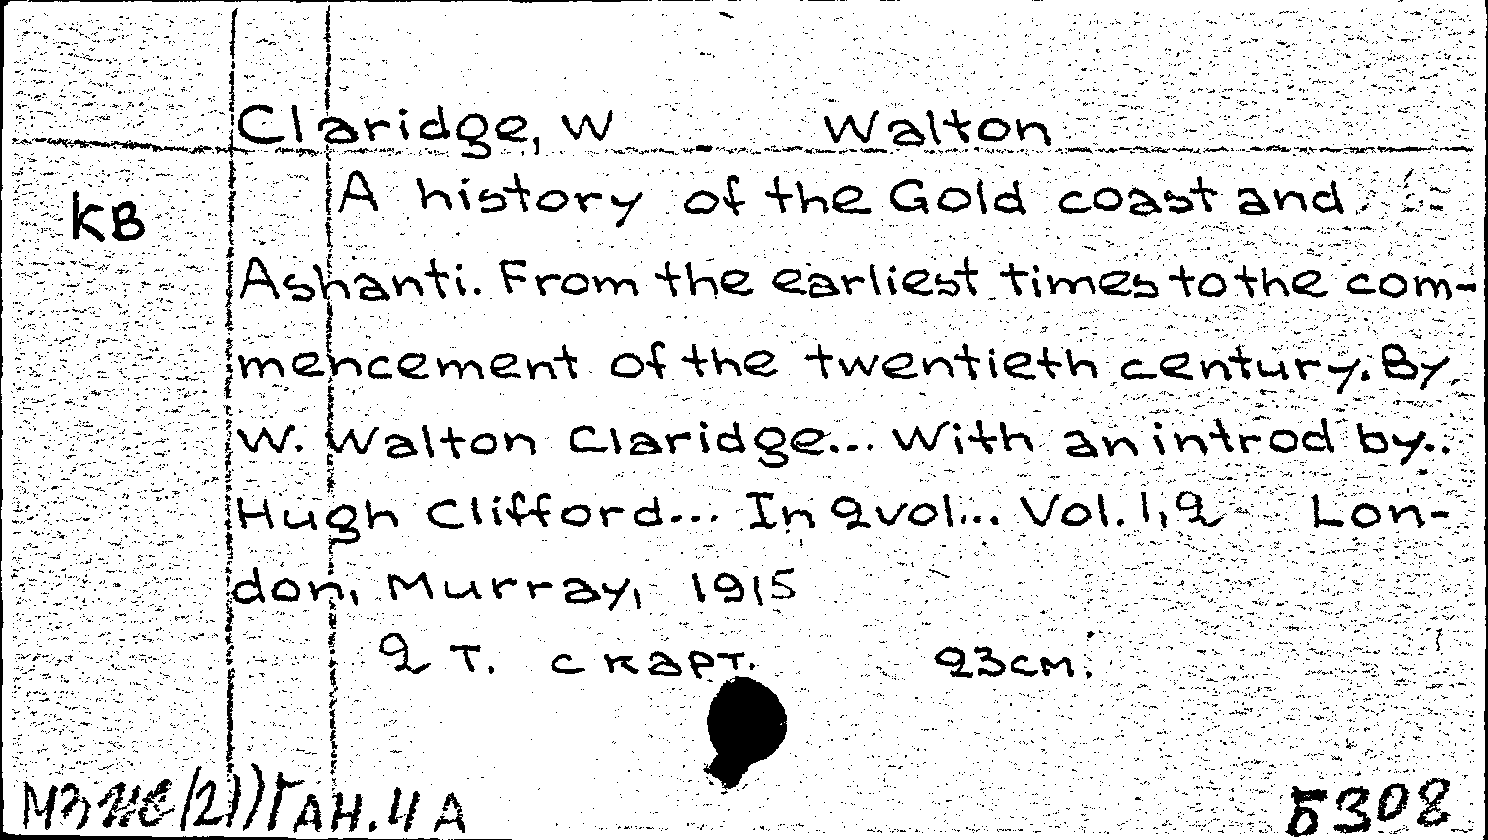 Claridge, W Walton
КВ
A history of the Gold coast and
Ashanti. From the earliest times to the com-
mencement of the twentieth century. By
W. Walton Claridge... With an introd by..
Hugh Clifford... In 2 vol... Vol. 1,2 Lon-
don, Murray, 1915
2 т. с карт. 23см.
5308